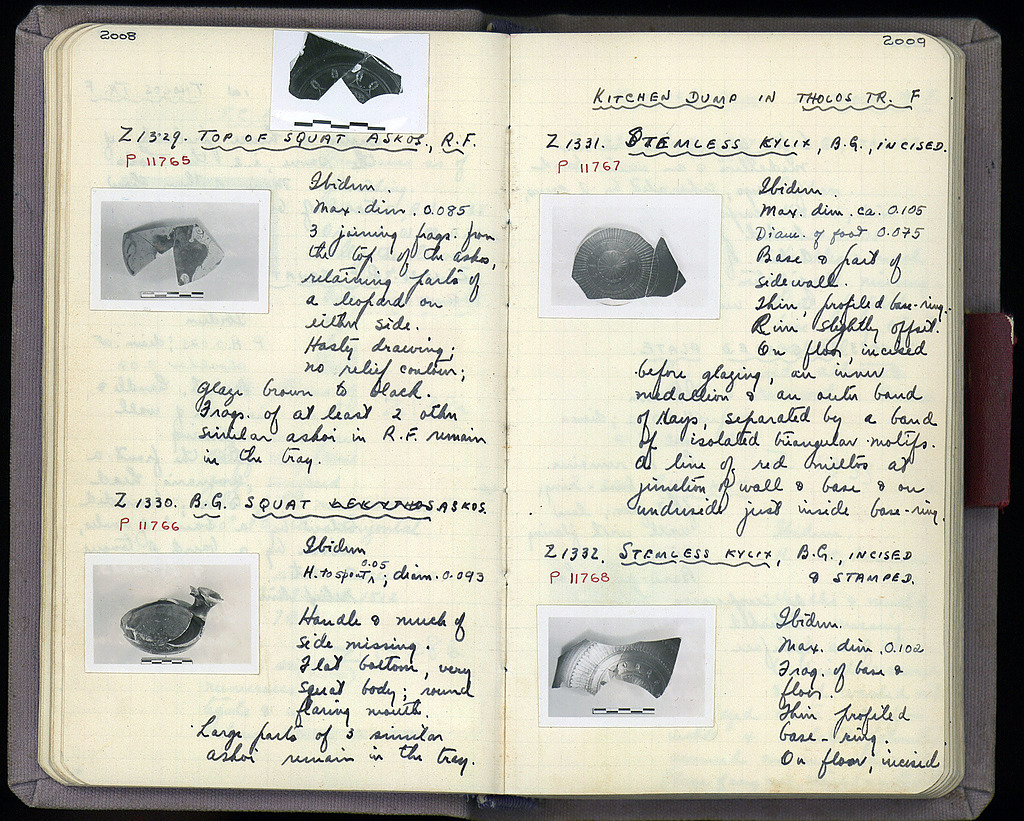 2008
Z 1329. TOP OF SQUAT ASKOS, R.F.
P 11765
Ibidum.
Max. dim. 0.085
3 joining frags. from
the top of the askos,
retaining parts of
a leopard on
either side.
Hasty drawing;
no relief contour;
glaze brown to black.
Frags. of at least 2 other
similar askoi in R.F. remain
in the tray.
Z 1330. B.G. SQUAT LEKYTHOS ASKOS.
P 11766
Ibidum
H. to spout 0.05; diam. 0.093
Handle & much of
side missing.
Flat bottom, very
squat body; round
flaring mouth.
Large parts of 3 similar
askoi remain in the tray.
2009
KITCHEN DUMP IN THOLOS TR. F
Z 1331. STEMLESS KYLIX, B.G., INCISED.
P 11767
Ibidum
Max. dim. ca. 0.105
Diam. of foot 0.075
Base & part of
sidewall.
Thin, profiled base-ring.
Rim slightly offset.
On floor, incised
before glazing, an inner
medallion & an outer band
of rays, separated by a band
of isolated triangular motifs.
A line of red miltos at
junction of wall & base & on
underside just inside base-ring.
Z 1332. STEMLESS KYLIX, B.G., INCISED
& STAMPED.
P 11768
Ibidum.
Max. dim. 0.102
Frag. of base &
floor.
Thin profiled
base-ring.
On floor, incised